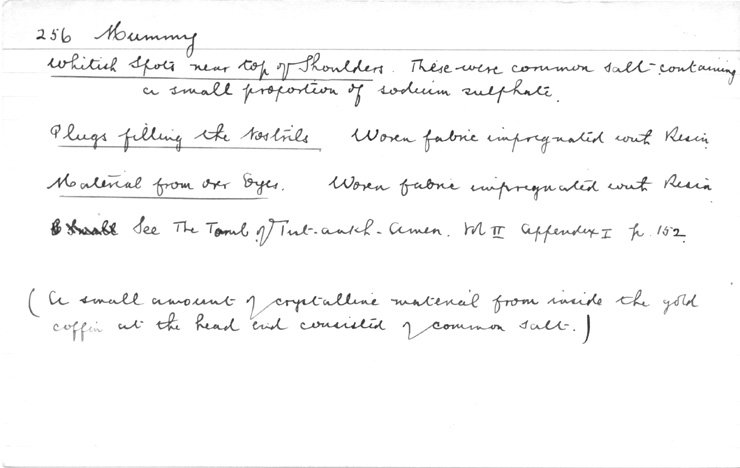 256 Mummy
Whitish Spots near top of Shoulders. These were common salt containing
a small proportion of sodium sulphate.
Plugs filling the Nostrils Woven fabric impregnated with Resin
Material from over Eyes. Woven fabric impregnated with Resin
See The Tomb of Tut-ankh-Amen. Vol II Appendix I p. 152
(A small amount of crystalline material from inside the gold
coffin at the head end consisted of common salt.)